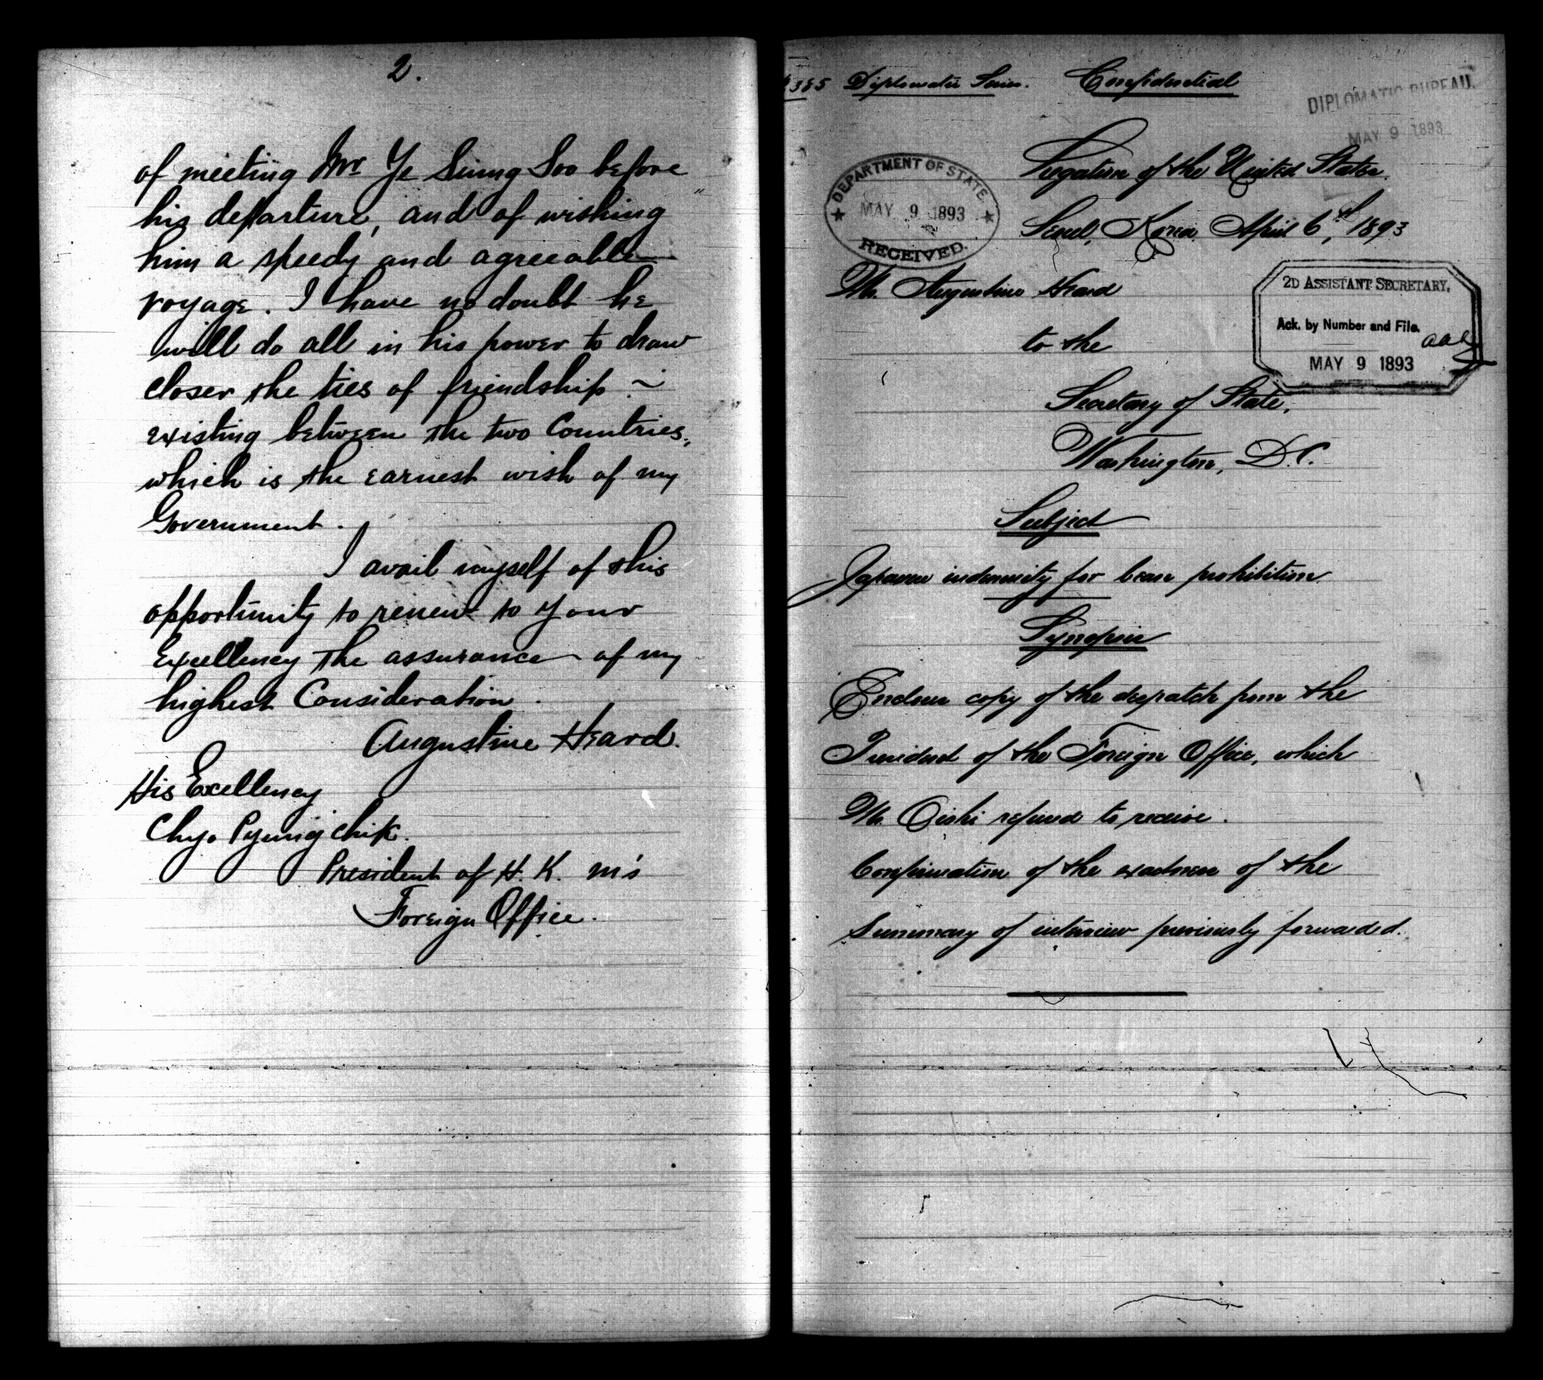 2.
of meeting Mr Ye Sŭng Soo before
his departure, and of wishing
him a speedy and agreeable
voyage. I have no doubt he
will do all in his power to draw
closer the ties of friendship
existing between the two Countries,
which is the earnest wish of my
Government.
I avail myself of this
opportunity to renew to Your
Excellency the assurance of my
highest Consideration.
Augustine Heard.
His Excellency
Chyo Pyung chik.
President of H. K. M's
Foreign Office.
385 Diplomatic Series. Confidential
DIPLOMATIC BUREAU.
MAY 9 1893
DEPARTMENT OF STATE
MAY 9 1893
RECEIVED.
Legation of the United States.
Seoul, Korea April 6th, 1893
Mr. Augustine Heard
to the
Secretary of State,
Washington, D.C.
2D ASSISTANT SECRETARY,
Ack. by Number and File.
MAY 9 1893
Subject
Japanese indemnity for bean prohibition
Synopsis
Encloses copy of the despatch from the
President of the Foreign Office, which
Mr. Oishi refused to receive.
Confirmation of the exactness of the
Summary of interview previously forwarded.